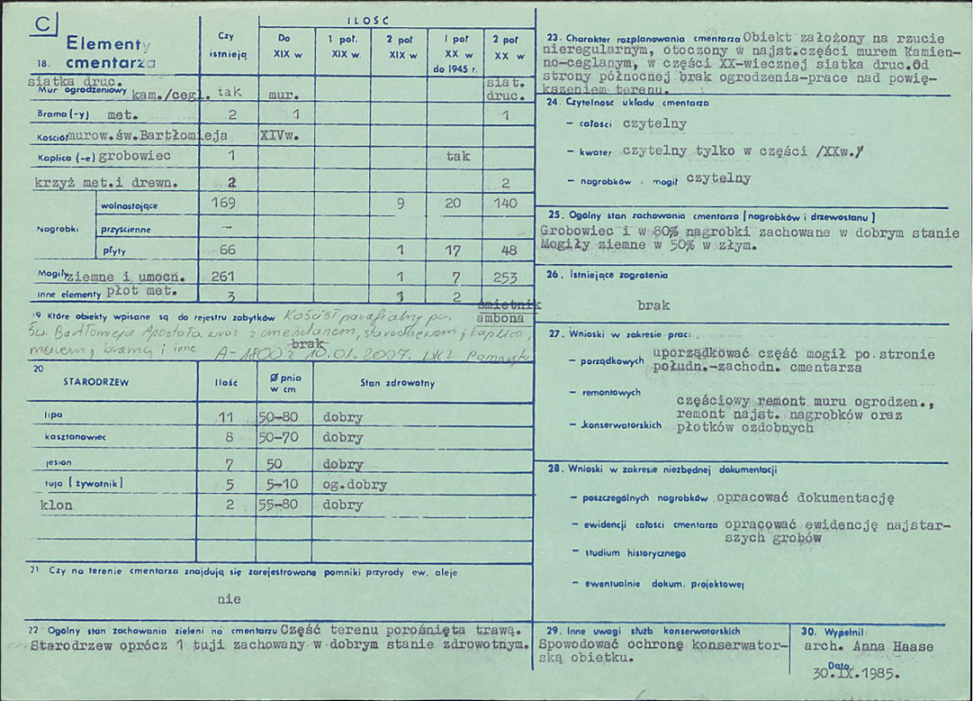 C
Elementy
18. cmentarza
Czy istnieją
ILOŚĆ
Do XIX w
1 poł. XIX w.
2 poł XIX w
1 poł XX w do 1945 r.
2 poł XX w
siatka druc.
Mur ogrodzeniowy kam./cegl. tak mur. siat. druc.
Brama (-y) met. 2 1 1
Kościół murow.św.Bartłomieja XIVw.
Kaplica (-e) grobowiec 1 tak
krzyż met.i drewn. 2 2
Nagrobki
wolnostojące 169 9 20 140
przyścienne -
płyty 66 1 17 48
Mogiły ziemne i umocn. 261 1 7 253
Inne elementy płot met. 3 1 2 śmietnik ambona
19 Które obiekty wpisane są do rejestru zabytków Kościół parafialny pw.
Św. Bartłomieja Apostoła wraz z cmentarzem, starodrzewem, kaplicą,
murem, bramą i inne brak A-1800 z 10.01.2007. WKZ Pomorski
20
STARODRZEW Ilość Ø pnia w cm Stan zdrowotny
lipa 11 50-80 dobry
kasztanowiec 8 50-70 dobry
jesion 7 50 dobry
tuja [żywotnik] 5 5-10 og.dobry
klon 2 55-80 dobry
21 Czy na terenie cmentarza znajdują się zarejestrowane pomniki przyrody ew. aleje
nie
22 Ogólny stan zachowania zieleni na cmentarzu Część terenu porośnięta trawą.
Starodrzew oprócz 1 tuji zachowany w dobrym stanie zdrowotnym.
23. Charakter rozplanowania cmentarza Obiekt założony na rzucie
nieregularnym, otoczony w najst.części murem Kamien-
no-ceglanym, w części XX-wiecznej siatka druc.Od
strony północnej brak ogrodzenia-prace nad powię-
kszeniem terenu.
24. Czytelność układu cmentarza
- całości czytelny
- kwater czytelny tylko w części /XXw./
- nagrobków . mogił czytelny
25. Ogólny stan zachowania cmentarza [nagrobków i drzewostanu]
Grobowiec i w 80% nagrobki zachowane w dobrym stanie
Mogiły ziemne w 50% w złym.
26. Istniejące zagrożenia
brak
27. Wnioski w zakresie prac:
- porządkowych uporządkować część mogił po stronie
połudn.-zachodn. cmentarza
- remontowych
częściowy remont muru ogrodzen.,
remont najst. nagrobków oraz
- konserwatorskich płotków ozdobnych
28. Wnioski w zakresie niezbędnej dokumentacji
- poszczególnych nagrobków opracować dokumentację
- ewidencji całości cmentarza opracować ewidencję najstar-
szych grobów
- studium historycznego
- ewentualnie dokum. projektowej
29. Inne uwagi służb konserwatorskich
Spowodować ochronę konserwator-
ską obiektu.
30. Wypełnił
arch. Anna Haase
Data
30.IX.1985.